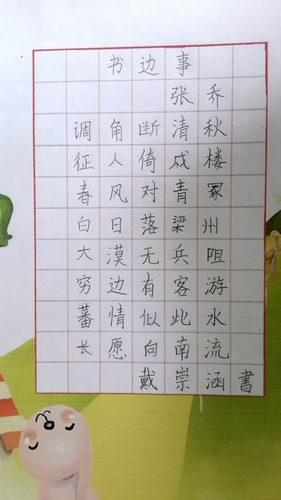 书边事
张乔
调角断清秋
征人倚戍楼
春风对青冢
白日落梁州
大漠无兵阻
穷边有客游
蕃情似此水
长愿向南流
戴崇涵書